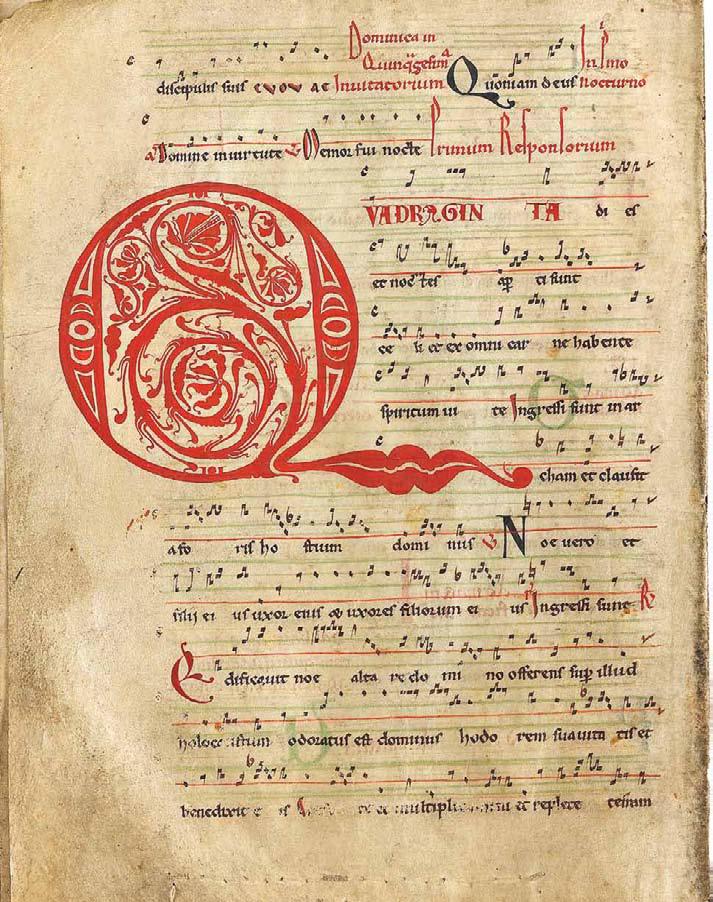 Dominica in
Quinqgesima In Pmo
discipulis suis evov ae Inuitatorium Quoniam deus nocturno
a Domine in uirtute Memor fui nocte Primum Responsorium
QVADRAGINTA di es
et noctes apti sunt
ce li et ex omni car ne habente
spiritum ui te Ingressi sunt in ar
cham et clausit
a fo ris ho stium domi nus N oe uero et
filii ei us uxor eius et uxores filiorum ei us Ingressi sunt R
Edificauit noe alta re do mi no offerens sup illud
holoc stum odoratus est dominus hodo rem suauita tis et
benedixit e is te et multipli et replete terram